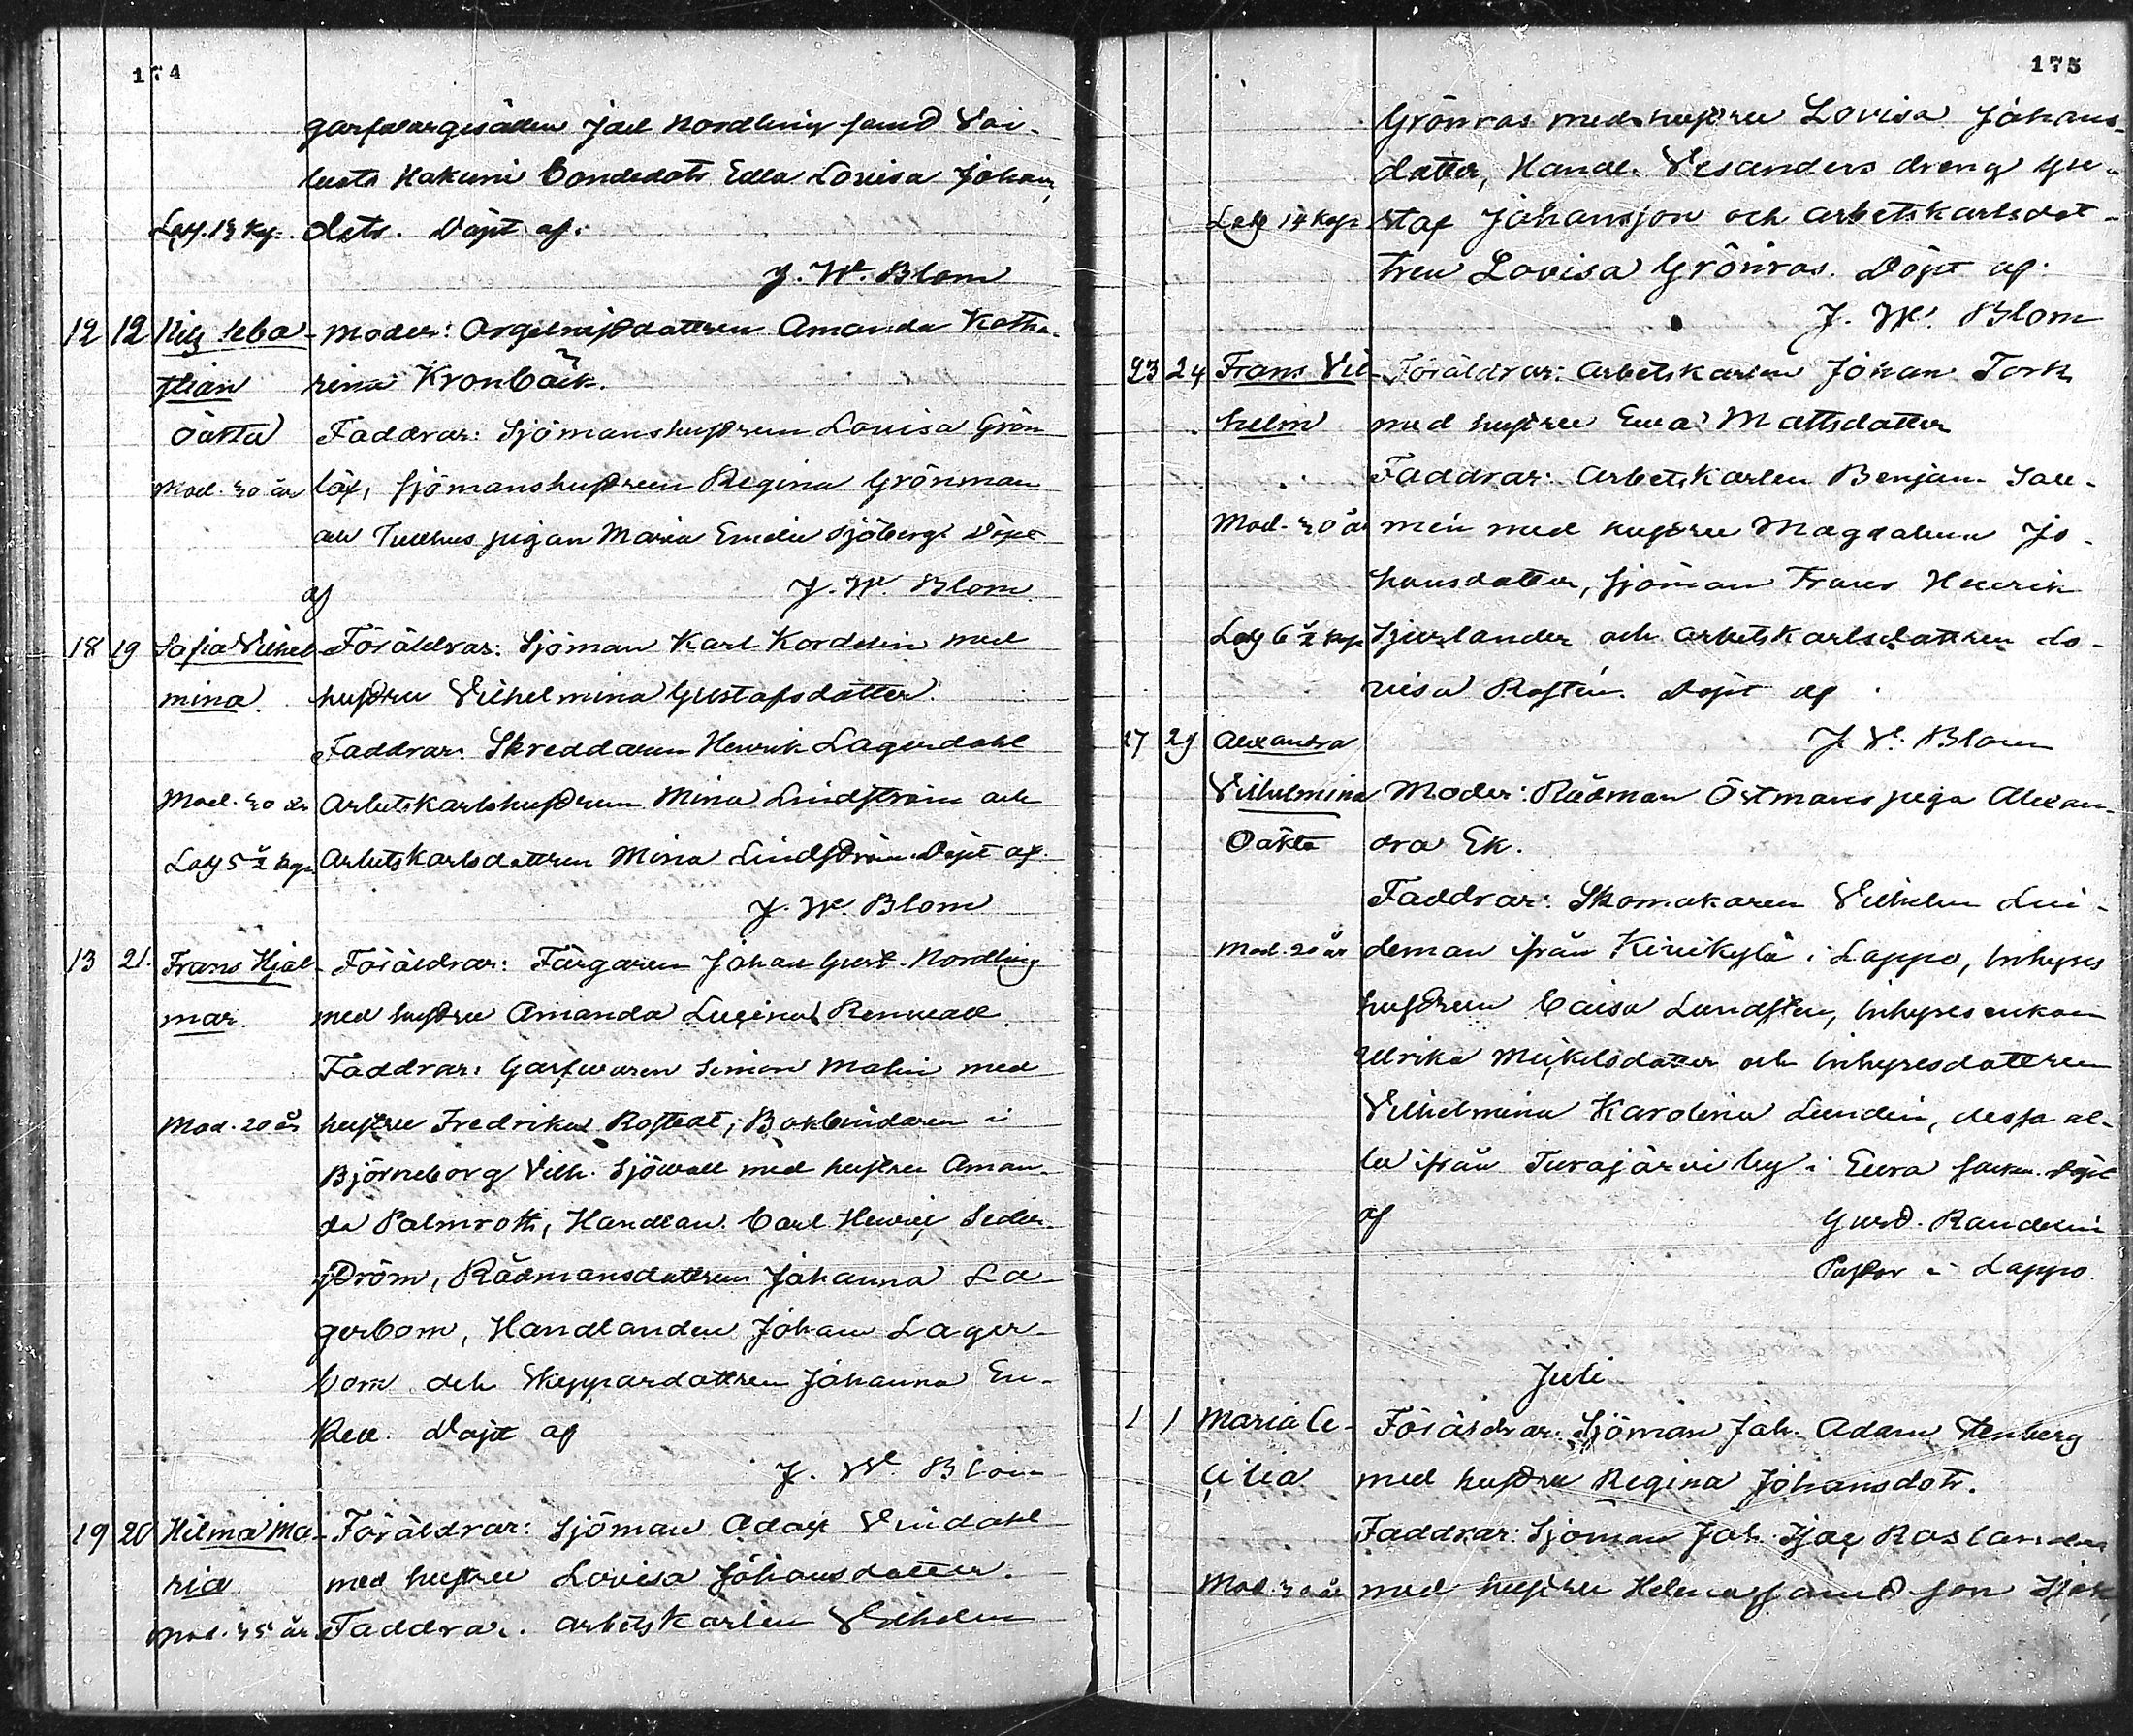 174
garfvaregesällen Joel Nordling samt Vai-
luoto Hakuni Bondedotr Edla Lovisa Johans
Låg. 13 kp. dotr. Döpt af.
J. W. Blom
12 12 Seba- Moder: Orgelnistdottren Amanda Katha-
stian rina Kronbäck.
Oäkta Faddrar: Sjömanshustrun Lovisa Grön
Mod. 30 år löf, Sjömanshustrun Regina Grönman
och Tullhus pigan Maria Emelie Sjöberg. Döpt
af J. W. Blom
18 19 Sofia Vilhel Föräldrar: Sjöman Karl Kordelin med
mina. hustru Vilhelmina Gustafsdotter.
Faddrar: Skreddaren Henrik Lagerdahl
Mod. 30 år Arbetskarlshustrun Mina Lindström och
Låg 5 ½ kp. Arbetskarlsdottren Mina Lindström. Döpt af.
J. W. Blom
13 21. Frans Hjal- Föräldrar: Färgaren Johan Gust. Nordling
mar. med hustru Amanda Renvall
Faddrar: Garfvaren Simon Malin med
Mod. 20 år hustru Fredrika Rostedt, Bokbindaren i
Björneborg Vilh. Sjöwall med hustru Aman-
da Palmroth, Handlan. Carl Henric Seder-
ström, Rådmansdottren Johanna La-
gerbom, Handlanden Johan Lager-
bom och Skeppardottren Johanna En-
kell. Döpt af
J. W. Blom
19 20 Hilma Ma- Föräldrar: Sjöman Adolf Vindahl
ria med hustru Lovisa Johansdotter.
Mod. 35 år Faddrar. Arbetskarlen Vilhelm
175
Grönros med hustru Lovisa Johans-
dotter, Handl. Vesanders dreng Gu-
Låg 14 kp. staf Johansson och arbetskarlsdot-
tren Lovisa Grönros. Döpt af.
J. W. Blom
23 24 Frans Vil- Föräldrar: Arbetskarlen Johan Tork
helm med hustru Eva Mattsdotter
Faddrar: Arbetskarlen Benjam. Sall-
Mod. 30 år min med hustru Magdalena Jo-
hansdotter, Sjöman Frans Henrik
Låg 6 ½ kp. och arbetskarlsdottren Lo-
visa Rostén. Döpt af
27 29 Alexandra J. W. Blom
Vilhelmina Moder: Rådman Östmans piga Alexan-
Oäkta dra Ek.
Faddrar: Skomakaren Vilhelm Lin-
Mod. 20 år deman ifrån Kiukylä i Lappo, Inhyses
hustrun Caisa Lundsten, Inhyses enkan
Ulrika Mickelsdotter och Inhysesdottren
Vilhelmina Karolina Lundin, dessa al-
la ifrån Turajärvi by i Eura socken. Döpt
af Gust. Randelin
Pastor i Lappo.
Juli
1 1 Maria Ce- Föräldrar: Sjöman Joh. Adam Stenberg
cilia med hustru Regina Johansdotr.
Faddrar: Sjöman Joh. Isac Roslander
Mod. 30 år med hustru Helena samt son Isak,